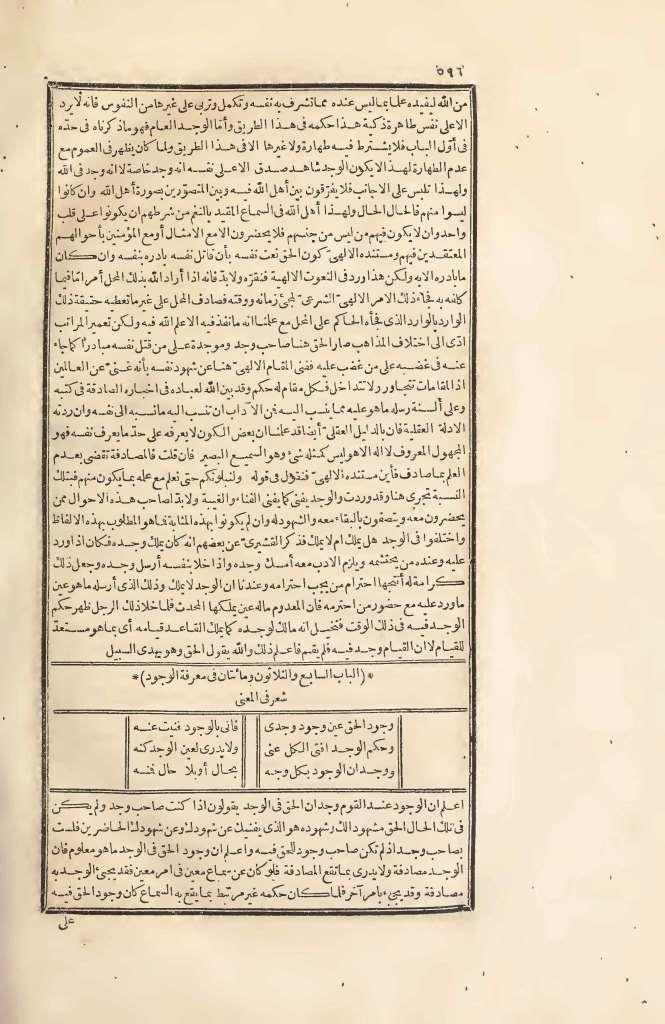 ٥٩٦
من الله ليفيده علما بما ليس عنده مما تشرف به نفسه وتكمل وتربى على غيرها من النفوس فانه لا يرد
الا على نفس طاهرة زكية هذا حكمه فى هذا الطريق وأما الوجد العام فهو ماذكرناه فى حدّه
فى أوّل الباب فلا يشترط فيه طهارة ولا غيرها الا فى هذا الطريق ولما كان يظهر فى العموم مع
عدم الطهارة لهذا لا يكون الوجد شاهد صدق الا على نفسه انه وجد خاصة لا انه وجد فى الله
ولهذا تلبس على الاجانب فلا يفرّقون بين أهل الله فيه وبين المتصوّرين بصورة أهل الله وان كانوا
ليسوا منهم فالحال الحال ولهذا أهل الله فى السماع المقيد بالنغم من شرطهم ان يكونوا على قلب
واحد وان لا يكون فيهم من ليس من جنسهم فلا يحضرون الا مع الامثال أو مع المؤمنين بأحوالهم
المعتقدين فيهم ومستنده الالهىّ كون الحق نعت نفسه بأن قاتل نفسه بادره بنفسه وان كان
ما بادره الا به ولكن هذا ورد فى النعوت الالهية فنقرّه ولا بدّ فانه اذا أراد الله بذلك المحل أمرا ما فيها
كانه به فجاءه ذلك الامر الالهىّ الشرعىّ لمجئ زمانه ووقته فصادف المحل على غير ما تعطيه حقيقة ذلك
الوارد بالوارد الذى فجأه الحاكم على المحل مع علمنا انه ما نفذ فيه الا علم الله فيه ولكن تعمير المراتب
ادّى الى اختلاف المذاهب صار الحق هنا صاحب وجد وموجدة على من قتل نفسه مبادرا كما جاء
عنه فى غضبه على من غضب عليه ففنى المقام الالهىّ هنا عن شهود نفسه بأنه غنىّ عن العالمين
اذ المقامات تتجاور ولا تتداخل فكل مقام له حكم وقد بين الله لعباده فى اخباره الصادقة فى كتبه
وعلى ألسنة رسله ما هو عليه مما ينسب اليه فمن الآداب ان تنسب اليه ما نسبه الى نفسه وان ردّته
الادلة العقلية فان بالدليل العقلىّ أيضا قد علمنا ان بعض الكون لا يعرفه على حدّ ما يعرف نفسه فهو
المجهول المعروف لا اله الا هو ليس كمثله شئ وهو السميع البصير فان قلت فالمصادفة تقضى بعدم
العلم بما صادف فأين مستنده الالهىّ فنقول فى قوله ولنبلونكم حتى نعلم مع علمه بما يكون منهم فبتلك
النسبة تجرى هنا وقد وردت والوجد يفنى كما يفنى الفناء والغيبة ولا بدّ لصاحب هذه الاحوال ممن
يحضرون معه ويتصفون بالبقاء معه والشهود له وان لم يكونوا بهذه المثابة فما هو المطلوب بهذه الالفاظ
واختلفوا فى الوجد هل يملك ام لا يملك فذكر القشيرىّ عن بعضهم انه كان يملك وجده فكان اذا ورد
عليه وعنده من يحتشمه ويلزم الادب معه أمسك وجده واذا خلا بنفسه أرسل وجده وجعل ذلك
كرامة له أنتجها احترام من يجب احترامه وعندنا ان الوجد لا يملك وذلك الذى أرسله ما هو عين
ما ورد عليه مع حضور من احترمه فان المعدوم ماله عين يملكها المحدث فلما خلا ذلك الرجل ظهر حكم
الوجد فيه فى ذلك الوقت فتخيل انه مالك لوجده كما يملك القاعد قيامه أى بما هو مستعدّ
للقيام لا ان القيام وجد فيه فلم يقم فاعلم ذلك والله يقول الحق وهو يهدى السبيل
*(الباب السابع والثلاثون ومائتان فى معرفة الوجود)*
شعر فى المعنى
وجود الحق عين وجود وجدى فانى بالوجود فنيت عنه
وحكم الوجد افنى الكل عنى ولا يدرى لعين الوجد كنه
ووجدان الوجود بكل وجه بحال أو بلا حال فمنه
اعلم ان الوجود عند القوم وجدان الحق فى الوجد يقولون اذا كنت صاحب وجد ولم يكن
فى تلك الحال الحق مشهودا لك وشهوده هو الذى يفنيك عن شهودك وعن شهودك الحاضرين فلست
بصاحب وجد اذ لم تكن صاحب وجود للحق فيه واعلم ان وجود الحق فى الوجد ما هو معلوم فان
الوجد مصادفة ولا يدرى بما تقع المصادفة فلو كان عن سماع معين فى امر معين فقد يجئ الوجد به
مصادفة وقد يجئ بأمر آخر فلما كان حكمه غير مرتبط بما يقع به السماع كان وجود الحق فيه
على